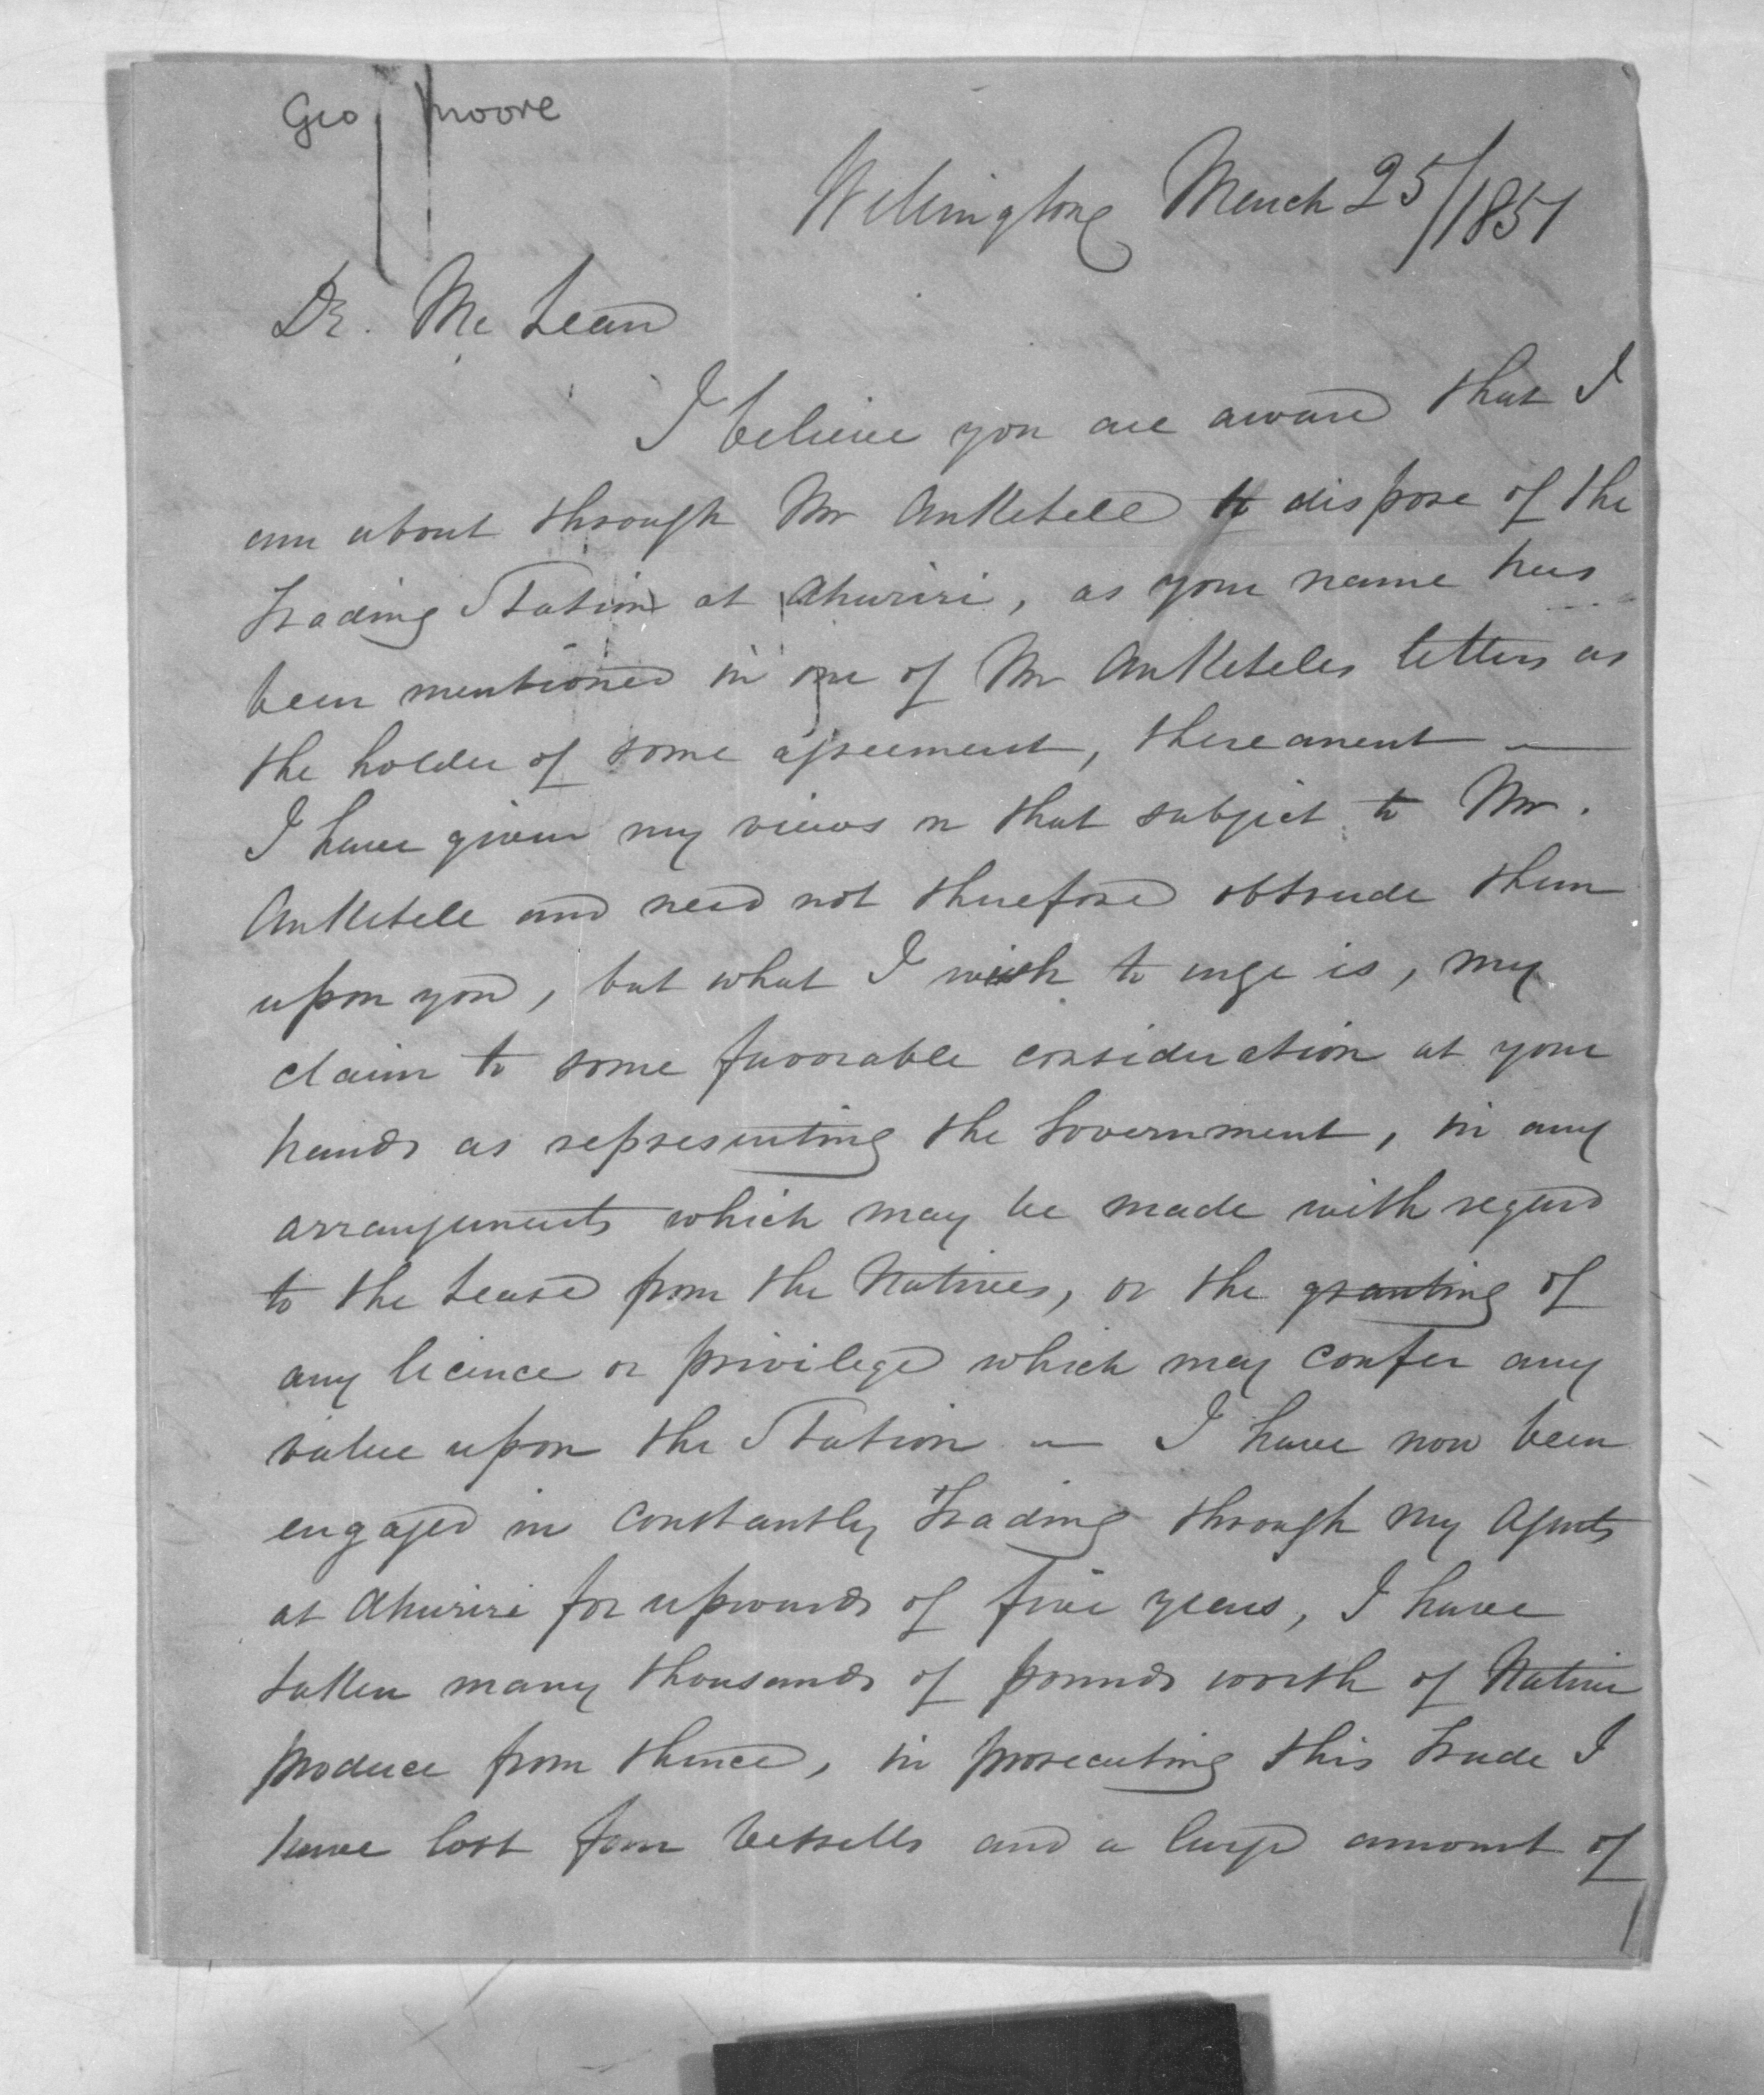 Geo Moore
Wellington March 25/1851
Dr. McLean
I believe you are aware that I
am about through Mr Anketell to dispose of the
Trading Station at Ahuriri, as your name has
been mentioned in one of Mr Anketells letters as
the holder of some agreement, thereanent —
I have given my views on that subject to Mr.
Anketell and need not therefore obtrude them
upon you, but what I wish to urge is, my
claim to some favorable consideration at your
hands as representing the Government, in any
arrangements which may be made with regard
to the Lease from the Natives, or the granting of
any licence or privilege which may confer any
value upon the Station — I have now been
engaged in constantly Trading through my Agents
at Ahuriri for upwards of five years, I have
taken many thousands of pounds worth of Native
produce from thence, in prosecuting this trade I
have lost four Vessells and a large amount of